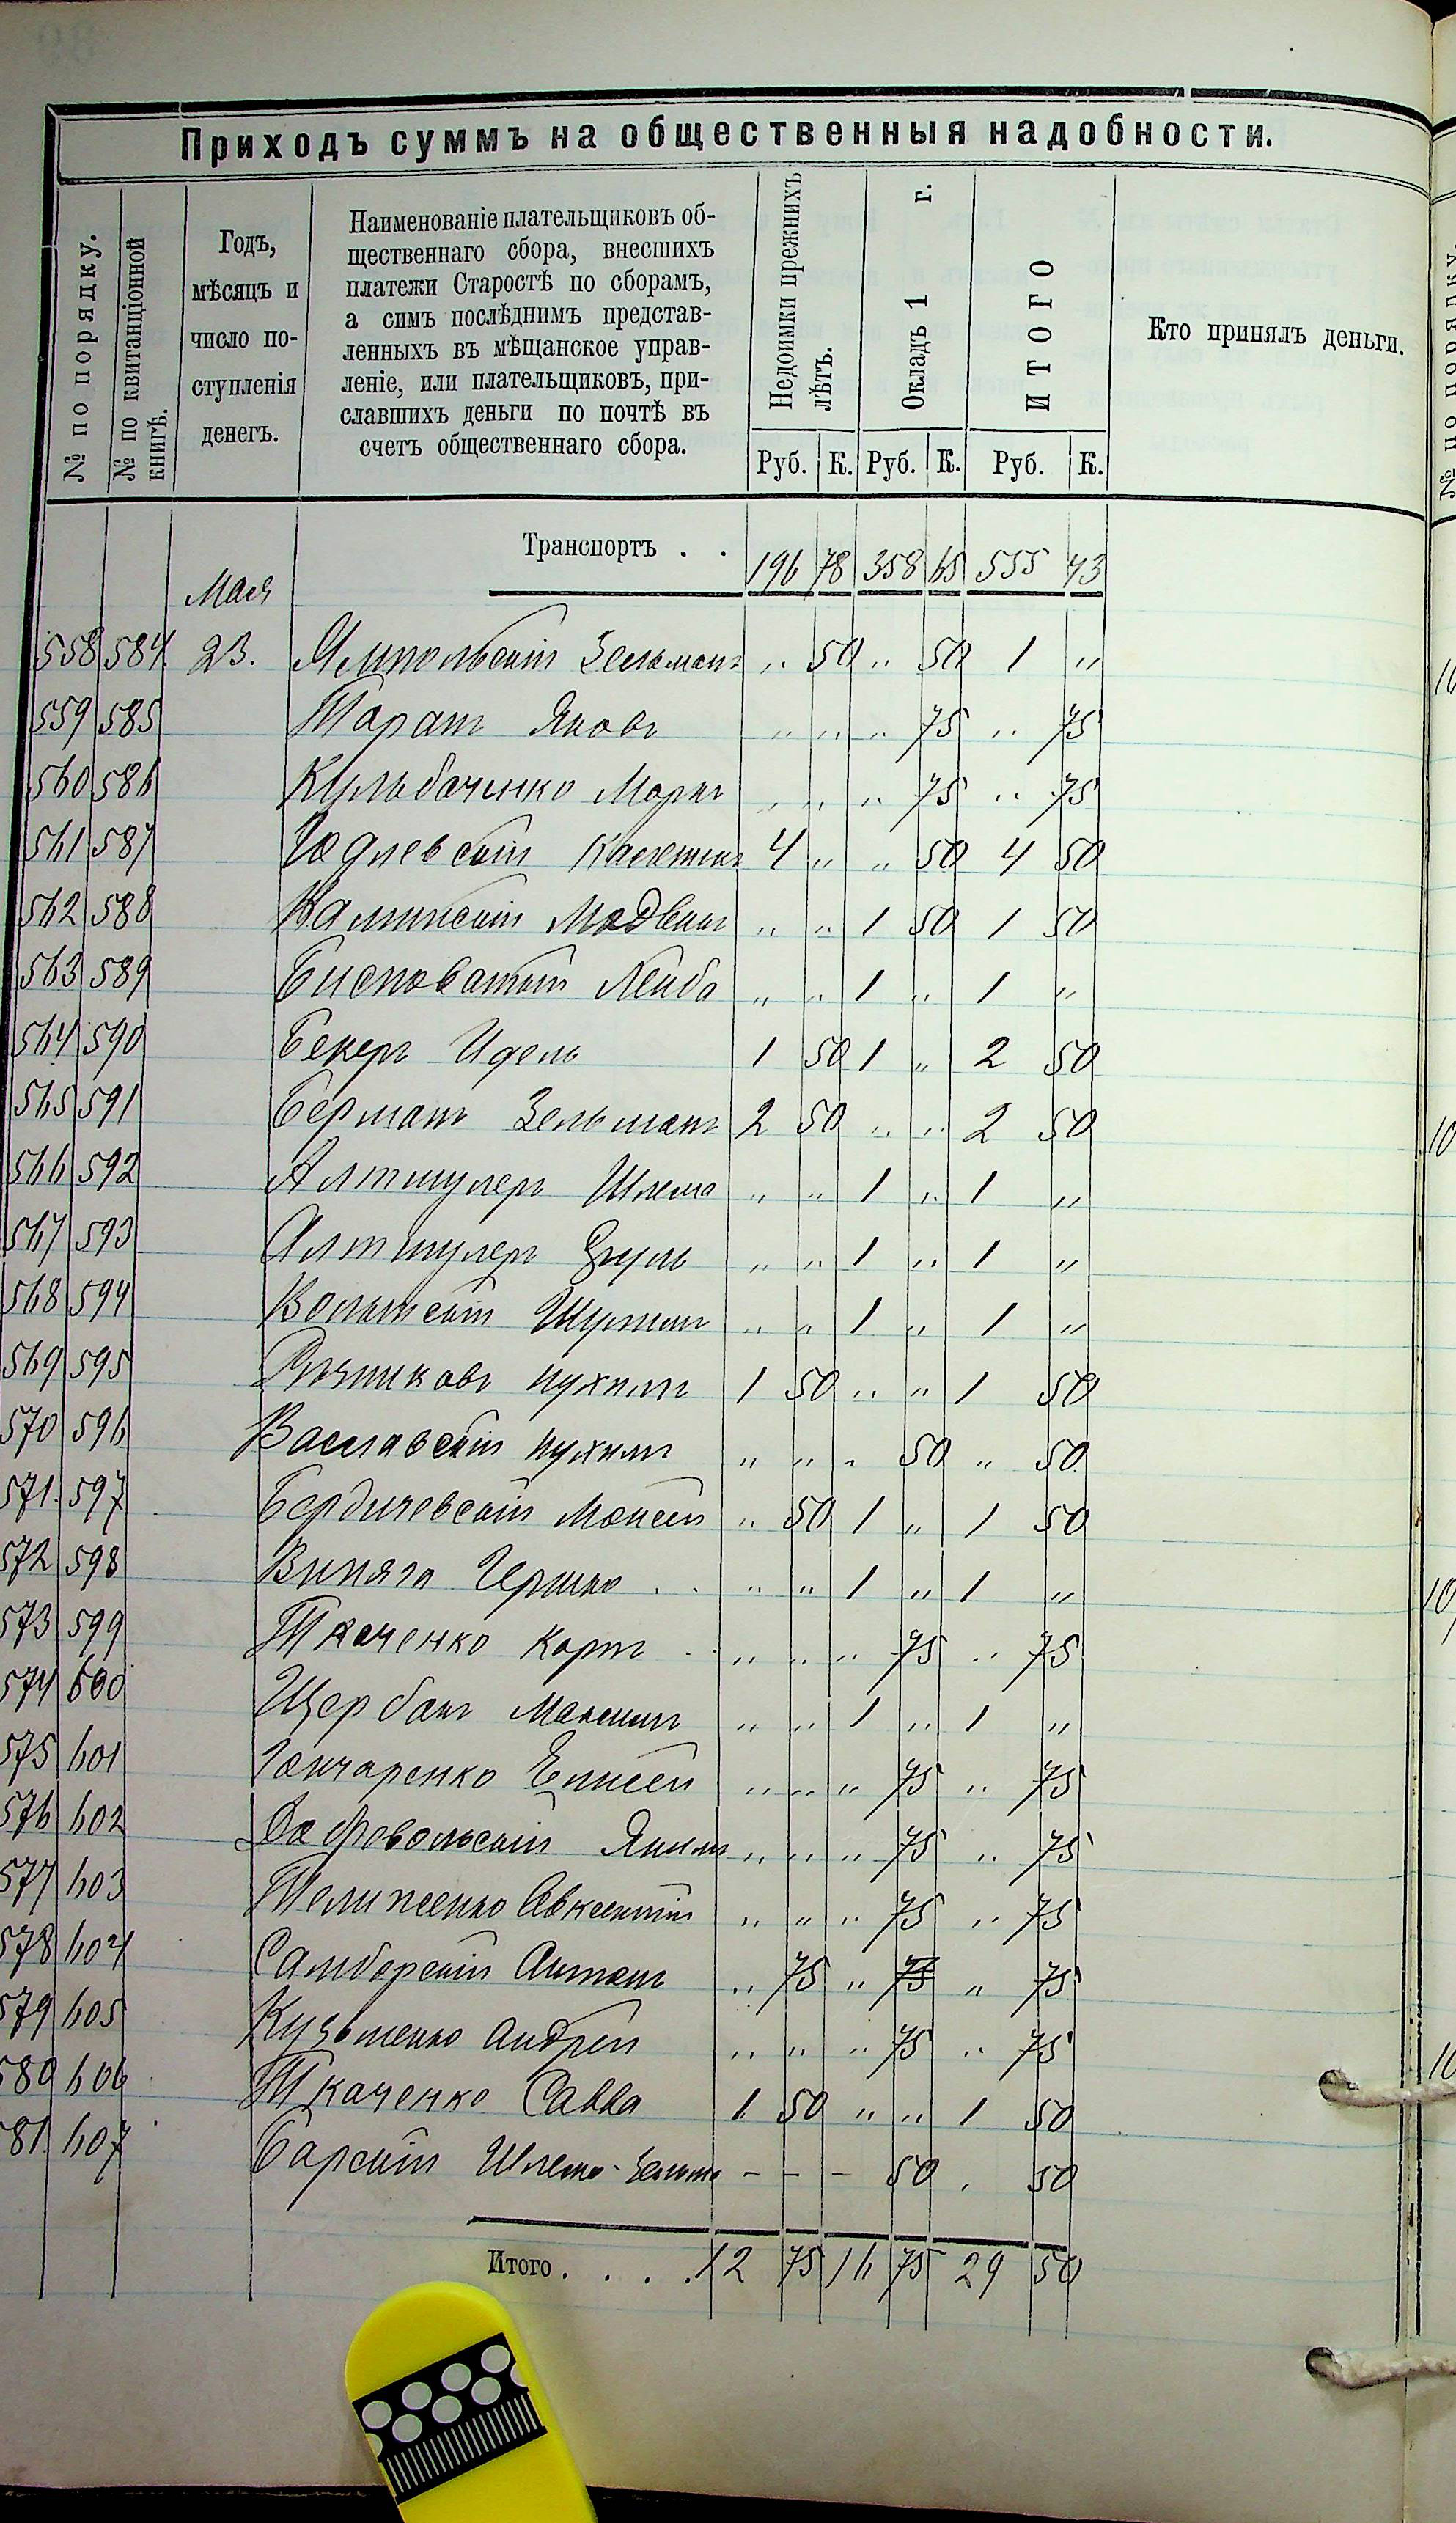 Приходъ суммъ на общественныя надобности.
№ по порядку.
№ по квитанціонной книгѣ.
Годъ,
мѣсяцъ и
число по-
ступленія
денегъ.
Наименованіе плательщиковъ об-
щественнаго сбора, внесшихъ
платежи Старостѣ по сборамъ,
а симъ послѣднимъ представ-
ленныхъ въ мѣщанское управ-
леніе, или плательщиковъ, при-
славшихъ деньги по почтѣ въ
счетъ общественнаго сбора.
Недоимки прежнихъ лѣтъ.
Окладъ 1 г.
ИТОГО
Кто принялъ деньги.
Руб. К. Руб. К. Руб. К.
Транспортъ . . 196 78 358 65 555 43
Мая
558 584 23. Ямпольскій Зельманъ " 50 " 50 1 "
559 585 Таранъ Яковъ " " " 75 " 75
560 586 Кульбаченко Маркъ " " " 75 " 75
561 587 Годлевскій 4 " " 50 4 50
562 588 Калинскій " " 1 50 1 50
563 589 Бисноватый Лейба " " 1 " 1 "
564 590 Бекеръ Идель 1 50 1 " 2 50
565 591 Берманъ Зельманъ 2 50 " " 2 50
566 592 Алтшулеръ Шлема " " 1 " 1 "
567 593 Алтшулеръ Сруль " " 1 " 1 "
568 594 " " 1 " 1 "
569 595 Рѣзниковъ Нухимъ 1 50 " " 1 50
570 596 Ваславскій Нухимъ " " " 50 " 50
571. 597 Бердичевскій Моисей " 50 1 " 1 50
572 598 Виняга Гершко . . " " 1 " 1 "
573 599 Ткаченко Карпъ . " " " 75 " 75
574 600 Щербань Максимъ " " 1 " 1 "
575 601 Гончаренко Елисей " " " 75 " 75
576 602 Добровольскій Якимъ " " " 75 " 75
577 603 Телиженко Авксентій " " " 75 " 75
578 604 Самборскій Антонъ " 75 " 75 " 75
579 605 Кузьменко Андрей " " " 75 " 75
580 606 Ткаченко Савва 1 50 " " 1 50
581. 607 Барскій Шлема-Зельма - - - 50 . 50
Итого . . . . 12 75 16 75 29 50